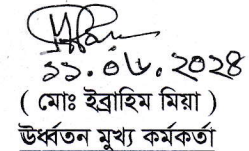 ১১.০৮.২০২৪
( মোঃ ইব্রাহিম মিয়া )
ঊর্ধ্বতন মুখ্য কর্মকর্তা